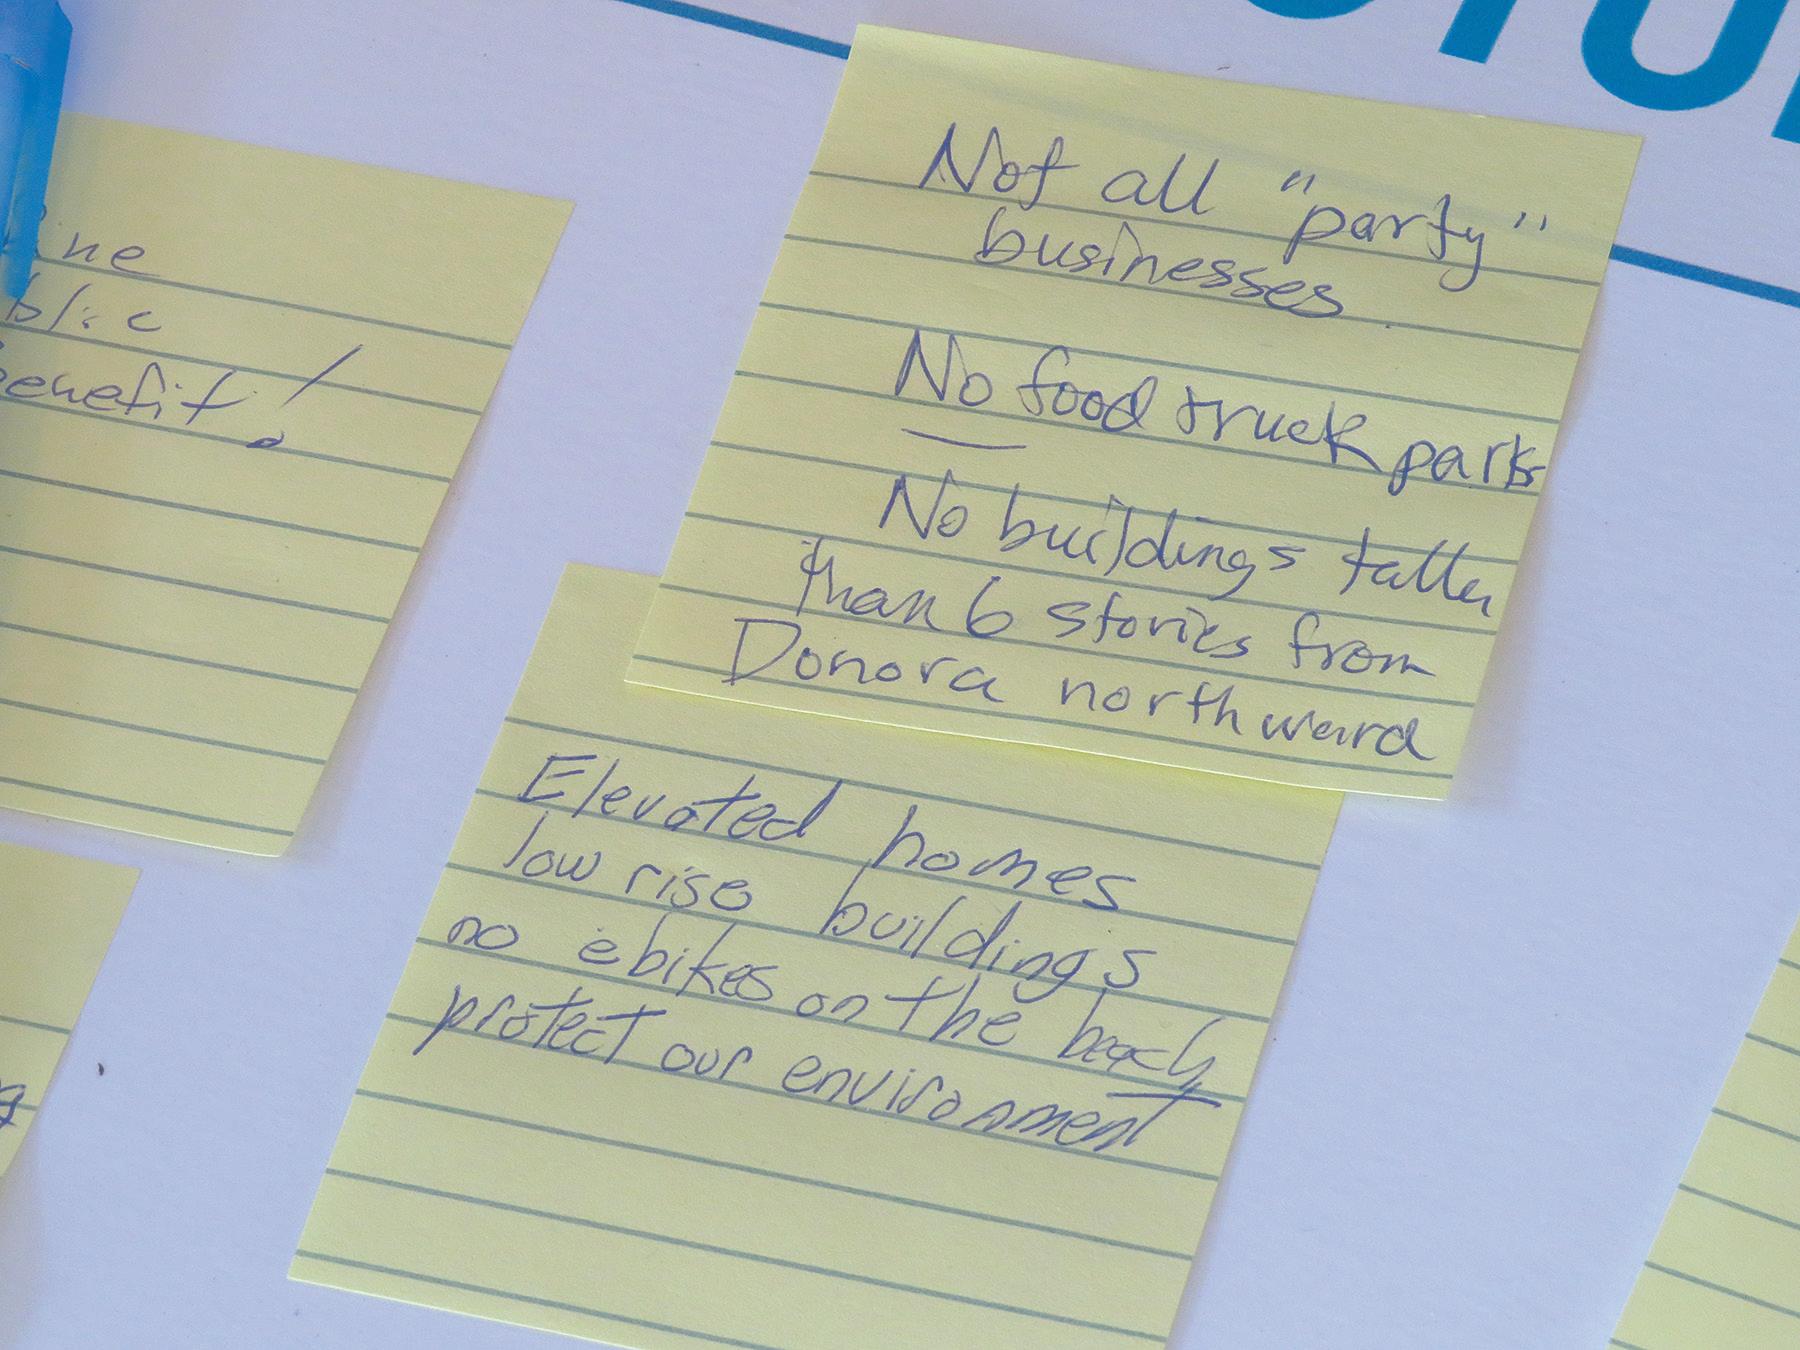 Not all "party"
businesses.
No food truck parks
No buildings taller
than 6 stories from
Donora northward
Elevated homes
low rise buildings
no ebikes on the beach
protect our environment